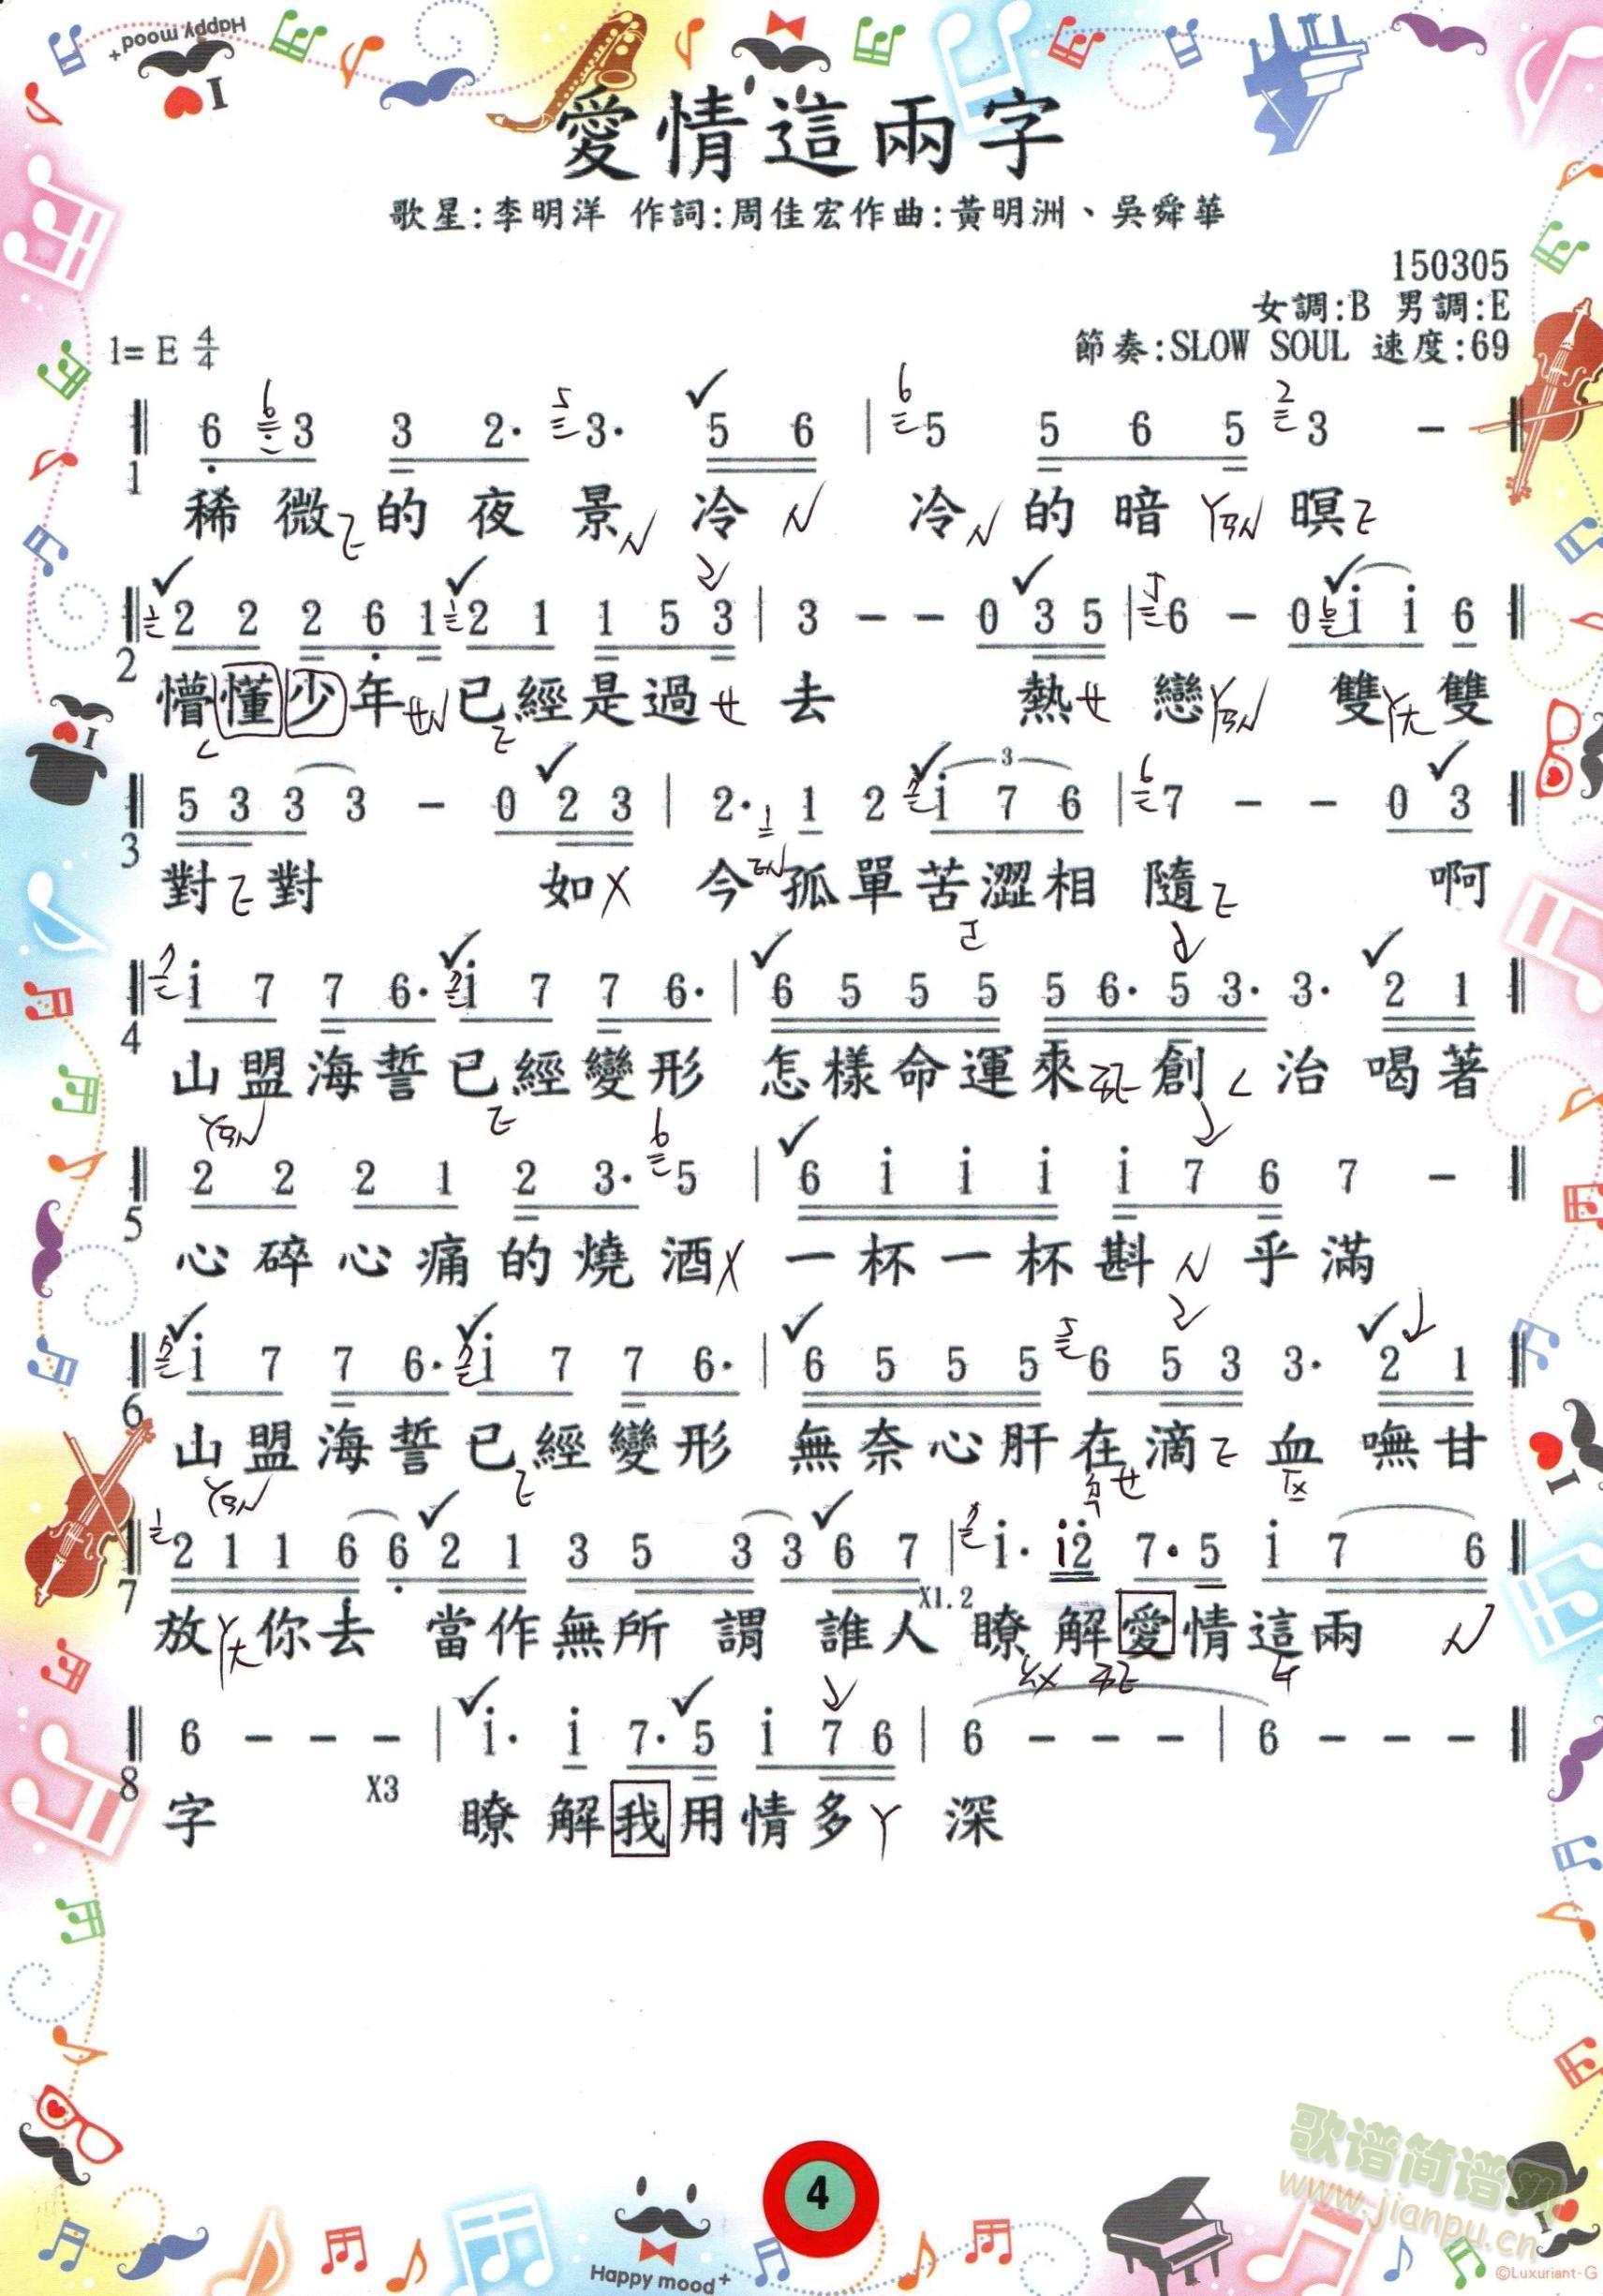 愛情這兩字
歌星:李明洋 作詞:周佳宏作曲:黃明洲、吳舜華
150305
女調:B 男調:E
1= E 4/4
節奏:SLOW SOUL 速度:69
6 3 3 2· 3· 5 6 | 5 5 6 5 3 -
1
稀微的夜景冷 冷的暗暝
2 2 2 6 1 2 1 1 5 3 | 3 - - 0 3 5 | 6 - 0 i i 6
2
懵懂少年已經是過去 熱戀 雙雙
5 3 3 3 - 0 2 3 | 2· 1 2 i 7 6 | 7 - - 0 3
3
對對 如今孤單苦澀相隨 啊
i 7 7 6· i 7 7 6· | 6 5 5 5 5 6· 5 3· 3· 2 1
4
山盟海誓已經變形 怎樣命運來創治 喝著
2 2 2 1 2 3· 5 | 6 i i i i 7 6 7 -
5
心碎心痛的燒酒 一杯一杯斟乎滿
i 7 7 6· i 7 7 6· | 6 5 5 5 6 5 3 3· 2 1
6
山盟海誓已經變形 無奈心肝在滴血 嘸甘
2 1 1 6 6 2 1 3 5 3 3 6 7 | i· i 2 7· 5 i 7 6
7
X1.2
放你去 當作無所謂 誰人瞭解愛情這兩
6 - - - | i· i 7· 5 i 7 6 | 6 - - - | 6 - - -
8
X3
字 瞭解我用情多深
4
Happy mood+
歌谱简谱网
www.jianpu.cn
©Luxuriant-G